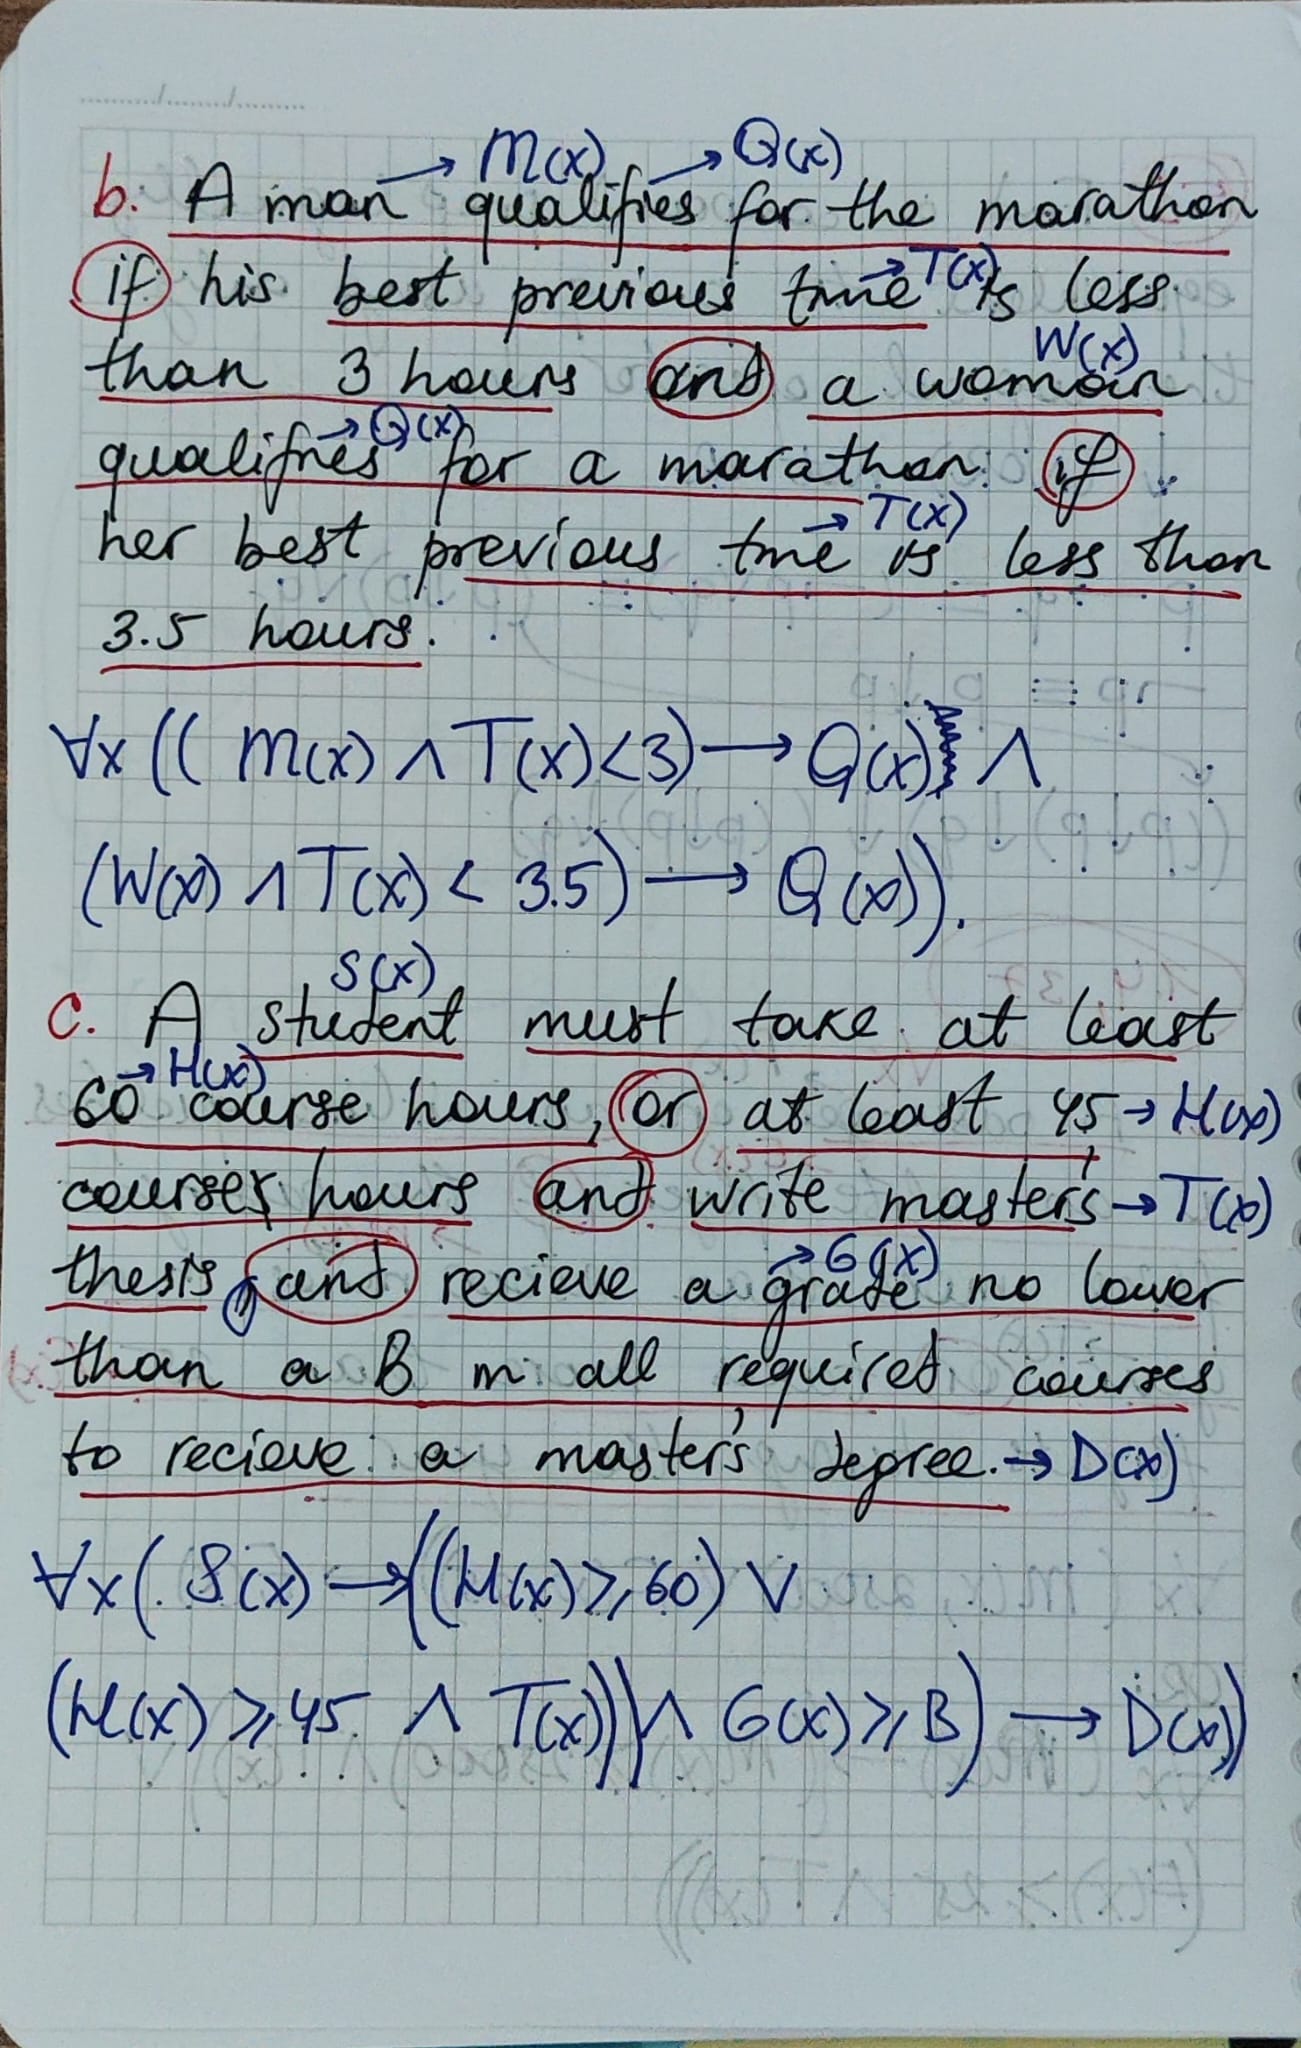 M(x) Q(x)
b. A man qualifies for the marathon
if his best previous time is less
T(x)
than 3 hours and a woman
W(x)
qualifies for a marathon if
Q(x)
her best previous time is less than
T(x)
3.5 hours.
∀x (( M(x) ∧ T(x)<3) → Q(x) ∧
(W(x) ∧ T(x) < 3.5) → Q(x)).
S(x)
c. A student must take at least
H(x)
60 course hours, or at least 45 → H(x)
courses hours and write master's → T(x)
thesis, and recieve a grade no lower
G(x)
than a B in all required courses
to recieve a master's degree. → D(x)
∀x ( S(x) → ((H(x) ≥ 60) ∨
(H(x) ≥ 45 ∧ T(x))) ∧ G(x) ≥ B) → D(x))